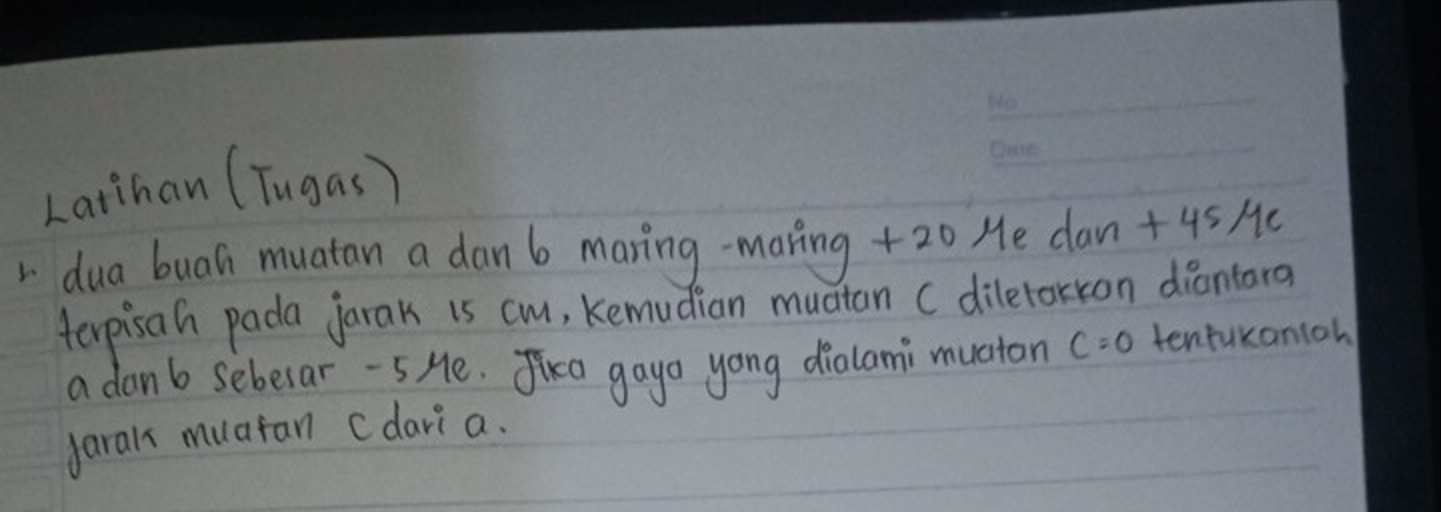 No
Date
Latihan (Tugas)
1. dua buah muatan a dan b masing-masing +20 Me dan +45 Mc
terpisah pada jarak 15 cm, kemudian muatan C diletakkan diantara
a dan b sebesar -5 Me. Jika gaya yang dialami muatan C=0 tentukanlah
jarak muatan C dari a.